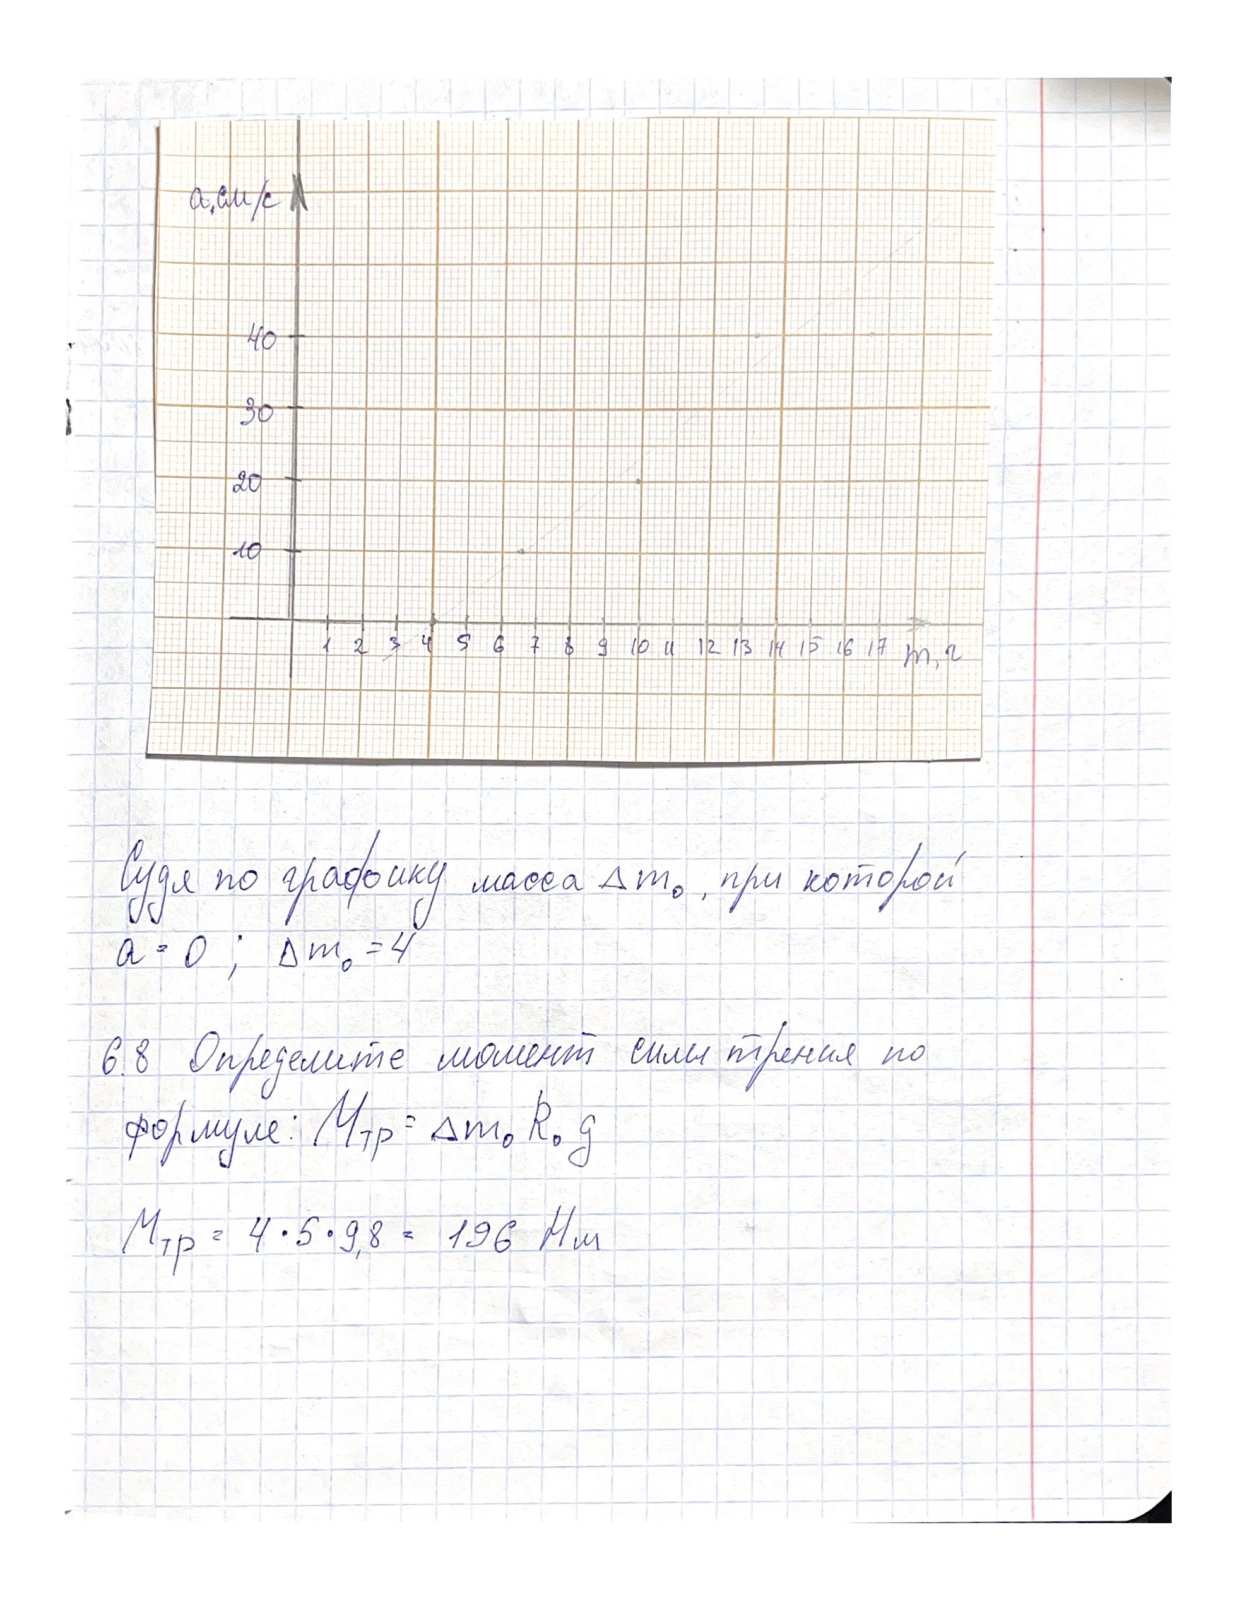 а, см/с
40
30
20
10
1 2 3 4 5 6 7 8 9 10 11 12 13 14 15 16 17 m, г
Судя по графику масса Δm₀, при которой
a = 0 ; Δm₀ = 4
6.8 Определите момент силы трения по
формуле: Mтр = Δm₀ R₀ g
Mтр = 4 · 5 · 9,8 = 196 Нм